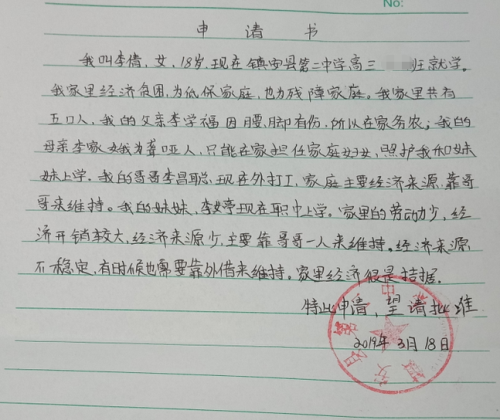 No:
申请书
我叫李倩,女,18岁,现在镇安县第二中学高三 班就学。
我家里经济贫困,为低保家庭,也为残障家庭。我家里共有
五口人,我的父亲李学福因腰,脚有伤,所以在家务农;我的
母亲李家娥为聋哑人,只能在家担任家庭妇女,照护我和妹
妹上学。我的哥哥李昌聪,现在外打工,家庭主要经济来源靠哥
哥来维持。我的妹妹,李婷现在职中上学。家里的劳动力少,经
济开销较大,经济来源少,主要靠哥哥一人来维持。经济来源
不稳定,有时候也需要靠外借来维持。家里经济很是拮据.
特此申请,望请批准
2019年3月18日